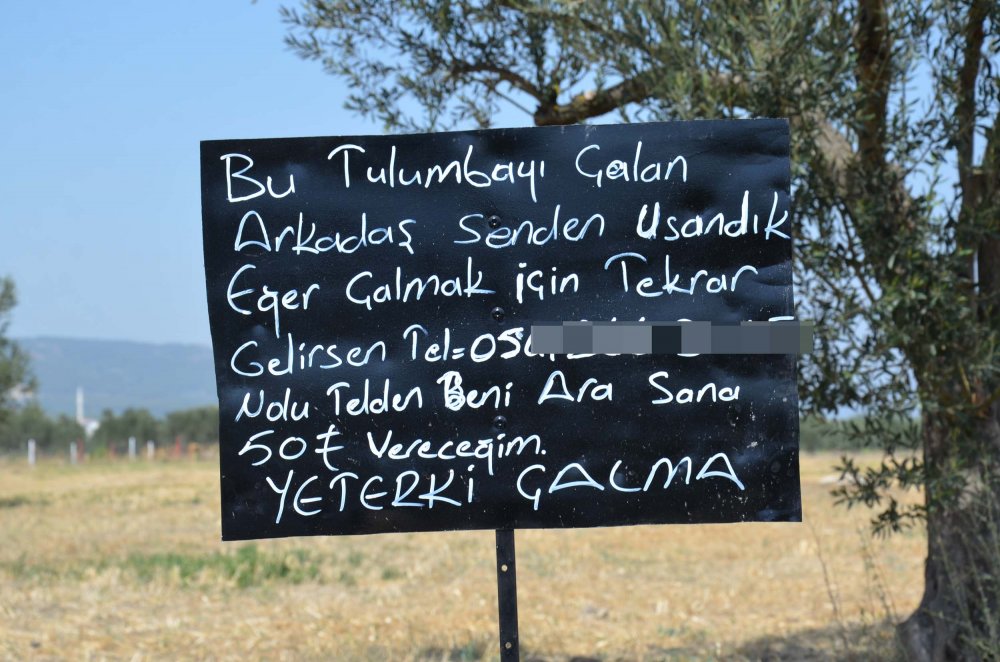 Bu Tulumbayı Çalan
Arkadaş Senden Usandık
Eğer Çalmak için Tekrar
Gelirsen Tel=
Nolu Telden Beni Ara Sana
50₺ Vereceğim.
YETERKİ ÇALMA